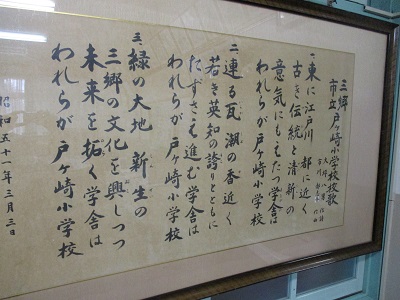 三郷
市立戸ヶ崎小学校校歌
作詩
作曲
一、東に江戸川 都に近く
古き伝統と清新の
意気にもえたつ学舎は
われらが戸ヶ崎小学校
二、連る瓦 潮の香近く
若き英知の誇りとともに
たずさえ進む学舎は
われらが戸ヶ崎小学校
三、緑の大地 新生の
三郷の文化を興しつつ
未来を拓く学舎は
われらが戸ヶ崎小学校
昭和五十一年三月三日